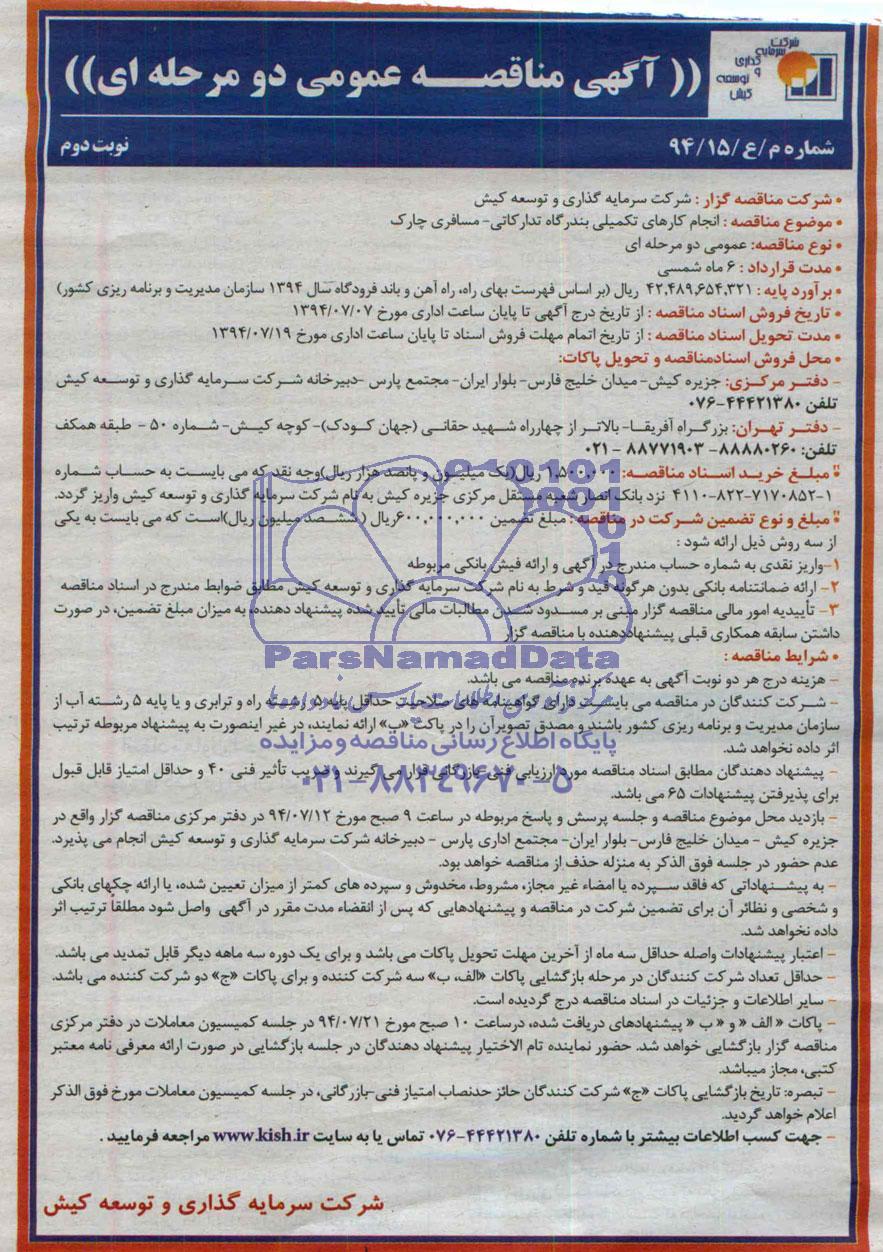 شرکت
سرمایه گذاری
و توسعه
کیش
(( آگهی مناقصـــه عمومی دو مرحله ای))
شماره م/ع/۹۴/۱۵
نوبت دوم
• شرکت مناقصه گزار : شرکت سرمایه گذاری و توسعه کیش
• موضوع مناقصه : انجام کارهای تکمیلی بندرگاه تدارکاتی- مسافری چارک
• نوع مناقصه: عمومی دو مرحله ای
• مدت قرارداد : ۶ ماه شمسی
• برآورد پایه : ۴۲,۴۸۹,۶۵۴,۳۲۱ ریال (بر اساس فهرست بهای راه، راه آهن و باند فرودگاه سال ۱۳۹۴ سازمان مدیریت و برنامه ریزی کشور)
• تاریخ فروش اسناد مناقصه : از تاریخ درج آگهی تا پایان ساعت اداری مورخ ۱۳۹۴/۰۷/۰۷
• مدت تحویل اسناد مناقصه : از تاریخ اتمام مهلت فروش اسناد تا پایان ساعت اداری مورخ ۱۳۹۴/۰۷/۱۹
• محل فروش اسنادمناقصه و تحویل پاکات:
- دفتـر مرکـزی: جزیره کیش- میدان خلیج فارس- بلوار ایران- مجتمع پارس -دبیرخانه شـرکت سـرمایه گـذاری و توسـعه کیش
تلفن ۴۴۴۲۱۳۸۰-۰۷۶
- دفتـر تهـران: بزرگـراه آفریقـا- بالاتـر از چهارراه شـهید حقانـی (جهان کـودک)- کوچه کیـش- شـماره ۵۰ - طبقه همکف
تلفن: ۸۸۸۸۰۲۶۰- ۸۸۷۷۱۹۰۳ - ۰۲۱
• مبلـغ خریـد اسـناد مناقصـه: ۱,۵۰۰,۰۰۰ ریال(یک میلیـون و پانصد هزار ریال)وجه نقد که می بایست به حسـاب شـماره
۱-۷۱۷۰۸۵۲-۸۲۲-۴۱۱۰ نزد بانک انصار شعبه مستقل مرکزی جزیره کیش به نام شرکت سرمایه گذاری و توسعه کیش واریز گردد.
• مبلغ و نوع تضمین شـرکت در مناقصه : مبلغ تضمین ۶۰۰,۰۰۰,۰۰۰ریال ( ششـصد میلیون ریال)است که می بایست به یکی
از سه روش ذیل ارائه شود :
۱-واریز نقدی به شماره حساب مندرج در آگهی و ارائه فیش بانکی مربوطه
۲- ارائه ضمانتنامه بانکی بدون هرگونه قید و شرط به نام شرکت سرمایه گذاری و توسعه کیش مطابق ضوابط مندرج در اسناد مناقصه
۳- تأییدیه امور مالی مناقصه گزار مبنی بر مسـدود شـدن مطالبات مالی تأیید شده پیشنهاد دهنده، به میزان مبلغ تضمین، در صورت
داشتن سابقه همکاری قبلی پیشنهاددهنده با مناقصه گزار
• شرایط مناقصه :
- هزینه درج هر دو نوبت آگهی به عهده برنده مناقصه می باشد.
- شـرکت کنندگان در مناقصه می بایسـت دارای گواهینامه های صلاحیت حداقل پایه ۵ رشـته راه و ترابری و یا پایه ۵ رشـته آب از
سازمان مدیریت و برنامه ریزی کشور باشند و مصدق تصویرآن را در پاکت «ب» ارائه نمایند، در غیر اینصورت به پیشنهاد مربوطه ترتیب
اثر داده نخواهد شد.
- پیشنهاد دهندگان مطابق اسناد مناقصه مورد ارزیابی فنی بازرگانی قرار می گیرند و ضریب تأثیر فنی ۴۰ و حداقل امتیاز قابل قبول
برای پذیرفتن پیشنهادات ۶۵ می باشد.
- بازدید محل موضوع مناقصه و جلسه پرسش و پاسخ مربوطه در ساعت ۹ صبح مورخ ۹۴/۰۷/۱۲ در دفتر مرکزی مناقصه گزار واقع در
جزیره کیش - میدان خلیج فارس- بلوار ایران- مجتمع اداری پارس - دبیرخانه شرکت سرمایه گذاری و توسعه کیش انجام می پذیرد.
عدم حضور در جلسه فوق الذکر به منزله حذف از مناقصه خواهد بود.
- به پیشـنهاداتی که فاقد سـپرده یا امضاء غیر مجاز، مشروط، مخدوش و سپرده های کمتر از میزان تعیین شده، یا ارائه چکهای بانکی
و شخصی و نظائر آن برای تضمین شرکت در مناقصه و پیشنهادهایی که پس از انقضاء مدت مقرر در آگهی واصل شود مطلقاً ترتیب اثر
داده نخواهد شد.
- اعتبار پیشنهادات واصله حداقل سه ماه از آخرین مهلت تحویل پاکات می باشد و برای یک دوره سه ماهه دیگر قابل تمدید می باشد.
- حداقل تعداد شرکت کنندگان در مرحله بازگشایی پاکات «الف، ب» سه شرکت کننده و برای پاکات «ج» دو شرکت کننده می باشد.
- سایر اطلاعات و جزئیات در اسناد مناقصه درج گردیده است.
- پاکات « الف » و « ب » پیشنهادهای دریافت شده، درساعت ۱۰ صبح مورخ ۹۴/۰۷/۲۱ در جلسه کمیسیون معاملات در دفتر مرکزی
مناقصه گزار بازگشایی خواهد شد. حضور نماینده تام الاختیار پیشنهاد دهندگان در جلسه بازگشایی در صورت ارائه معرفی نامه معتبر
کتبی، مجاز میباشد.
- تبصره: تاریخ بازگشایی پاکات «ج» شرکت کنندگان حائز حدنصاب امتیاز فنی-بازرگانی، در جلسه کمیسیون معاملات مورخ فوق الذکر
اعلام خواهد گردید.
- جهت کسب اطلاعات بیشتر با شماره تلفن ۴۴۴۲۱۳۸۰-۰۷۶ تماس یا به سایت www.kish.ir مراجعه فرمایید .
شرکت سرمایه گذاری و توسعه کیش
ParsNamadData
پایگاه اطلاع رسانی مناقصه و مزایده
۰۲۱-۸۸۳۴۹۶۷۰-۵